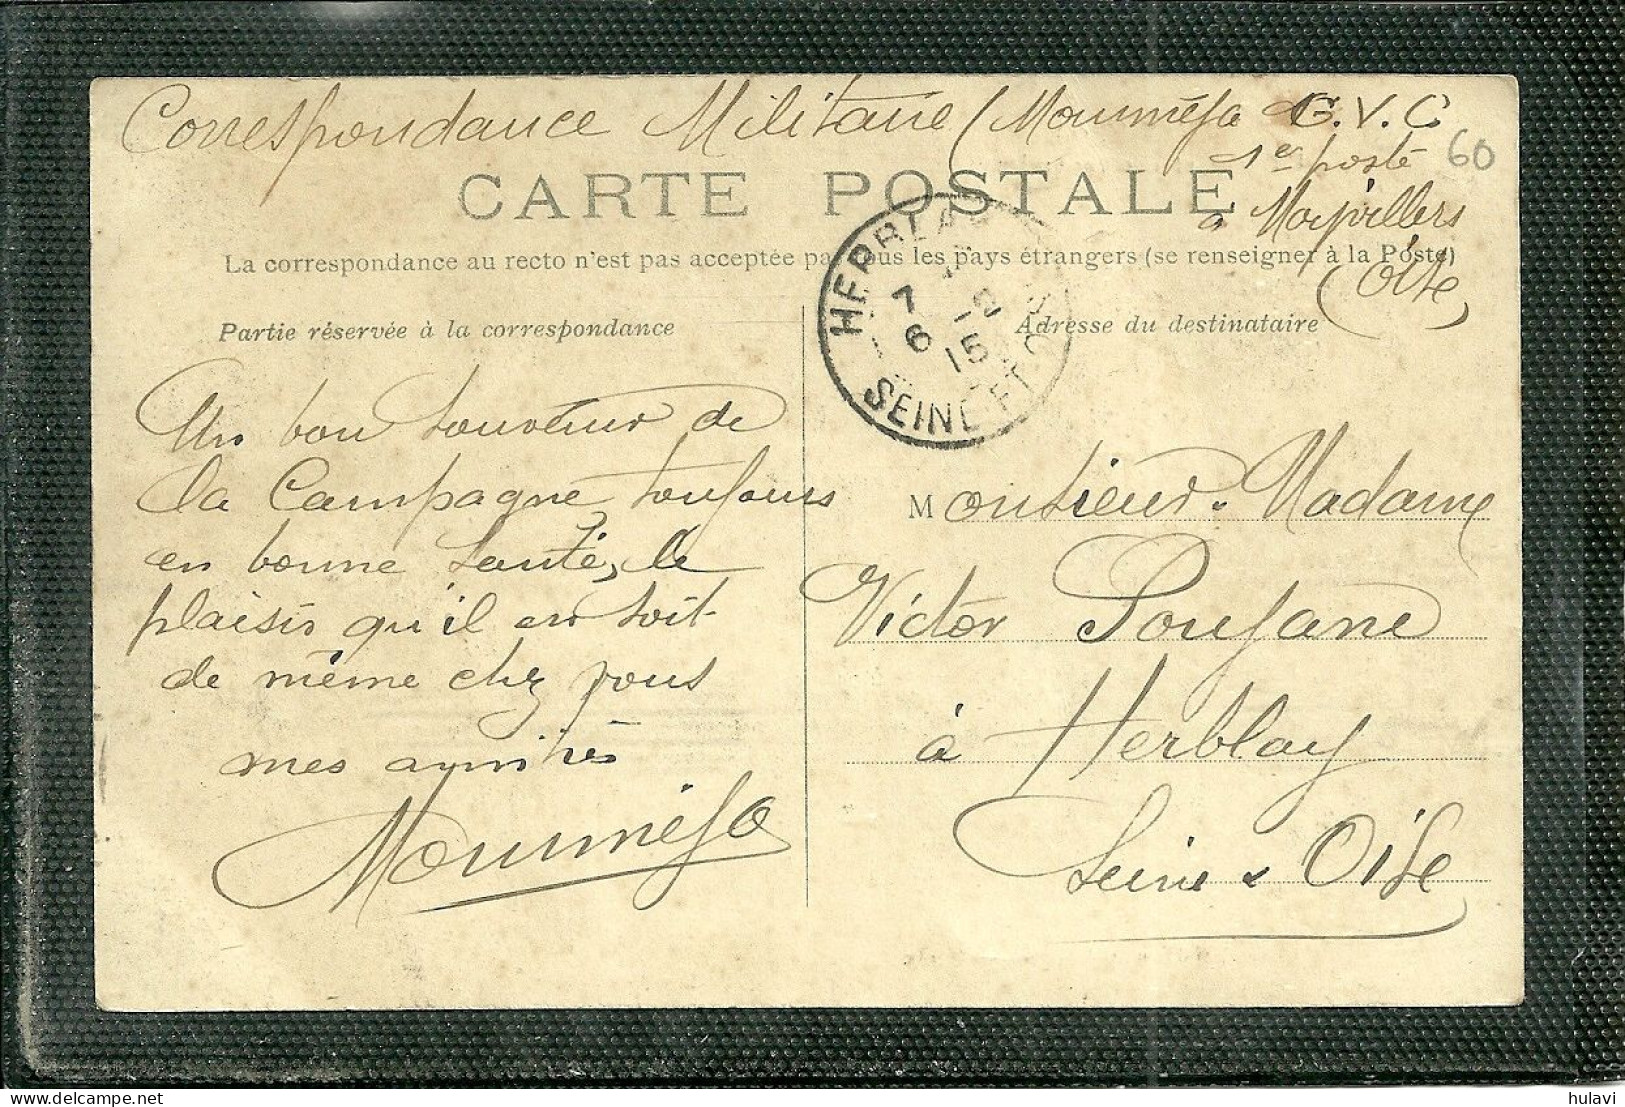 Correspondance Militaire (Mounnéja G.V.C
1er poste
60
CARTE POSTALE
a Moyvillers
La correspondance au recto n'est pas acceptée par tous les pays étrangers (se renseigner à la Poste)
(Oise)
HERBLAY
7 -2
6 15
SEINE ET O
Partie réservée à la correspondance
Adresse du destinataire
Un bon souvenir de
la Campagne, toujours
en bonne santé, le
plaisir qu'il en soit
de même chez vous
mes amitiés
Mounnéja
Monsieur. Madame
Victor Poujane
à Herblay
Seine & Oise
hulavi